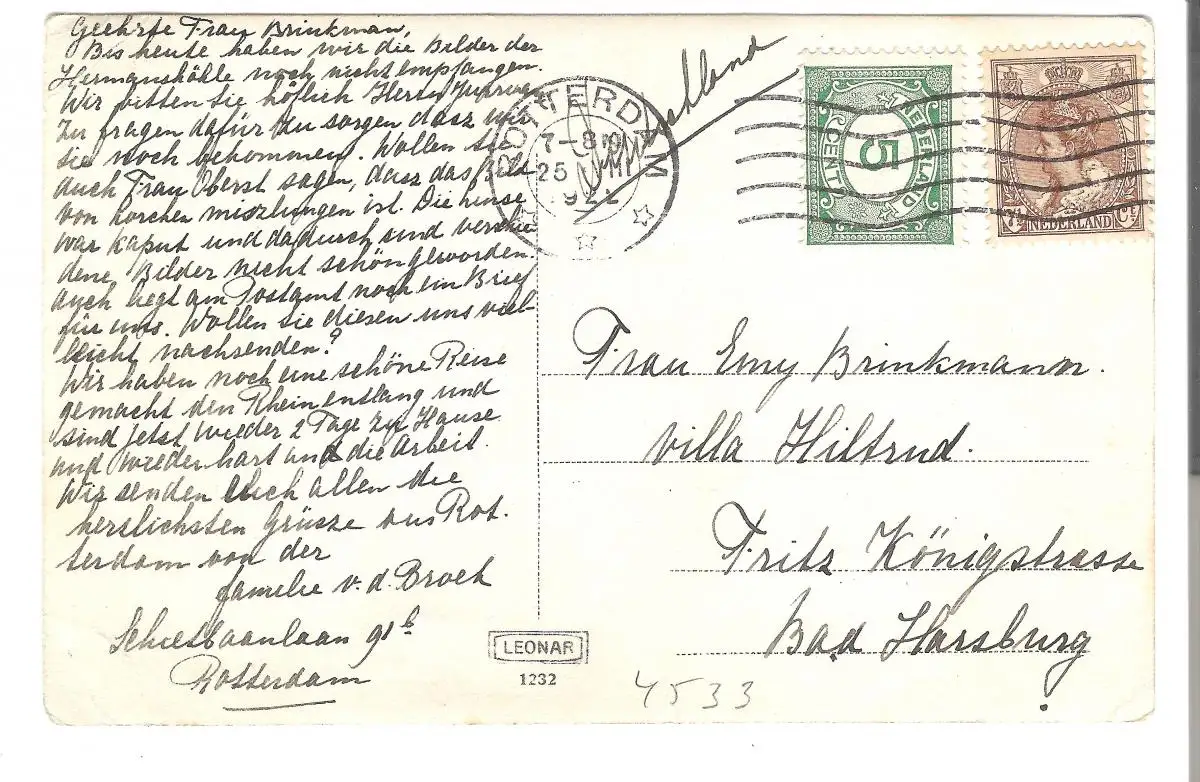 Geehrte Frau Brinkman,
Bis heute haben wir die Bilder der
Hermanshölle noch nicht empfangen.
Wir bitten Sie höflich Herrn
zu fragen dafür zu sorgen dasz wir
sie noch bekommen. Wollen Sie
auch Frau Oberst sagen, dasz das Bild
von horchen miszlungen ist. Die linse
war kaput und dadurch sind verschie
dene Bilder nicht schön geworden.
auch liegt am Postamt noch ein Brief
für uns. Wollen Sie diesen uns viel-
leicht nachsenden?
Wir haben noch eine schöne Reise
gemacht den Rhein entlang und
sind jetzt wieder 2 Tage zu Hause
und wieder hart an die Arbeit.
Wir senden Euch allen die
herslichsten Grüsze aus Rot.
terdam von der
familie v. d. Broek
Schietbaanlaan 91 b
Rotterdam
ROTTERDAM
7-8
25
192
5
CENT
NEDERLAND
7½ NEDERLAND Ct
Frau Emy Brinkmann.
Villa Hiltrud.
Fritz Königstrasse
Bad Harsburg
LEONAR
1232
4533